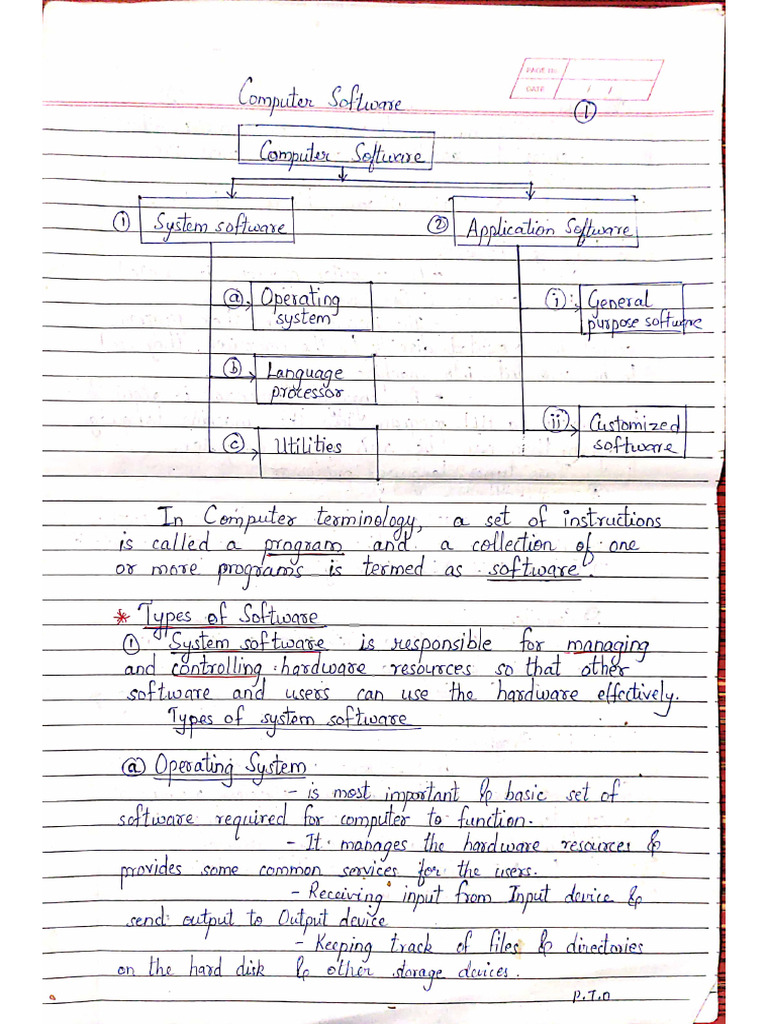 Computer Software
PAGE NO.
DATE / /
①
Computer Software
① System software
② Application Software
ⓐ Operating
system
ⓑ Language
processor
ⓒ Utilities
ⓘ General
purpose software
ⓘⓘ Customized
software
In Computer terminology, a set of instructions
is called a program and a collection of one
or more programs is termed as software.
* Types of Software
① System software is responsible for managing
and controlling hardware resources so that other
software and users can use the hardware effectively.
Types of system software
ⓐ Operating System
- is most important & basic set of
software required for computer to function.
- It manages the hardware resources &
provides some common services for the users.
- Receiving input from Input device &
send output to Output device
- Keeping track of files & directories
on the hard disk & other storage devices.
P.T.O